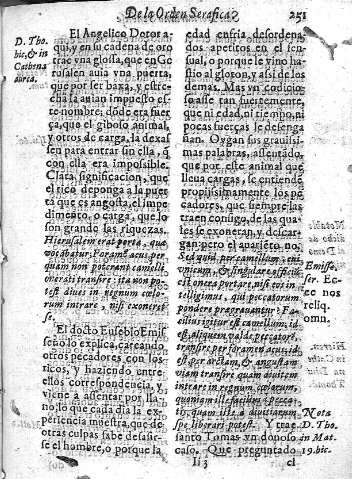 De la Orden Serafica? 251
D. Tho.
hic, & in
Cathena
aurea.
El Angelico Doctor a-
qui, y en su cadena de oro
trae vna glosa, que en Ge
rusalen auia vna puerta,
que por ser baxa, y estre
cha la auian impuesto es-
te nombre, dōde era fuer
ça, que el giboso animal,
y otros de carga, la dexas
sen para entrar sin ella, q̃
con ella era impossible.
Clara significacion, que
el rico deponga a la puer
ta que es angosta, el impe
dimēto, o carga, que lo
son grandes las riquezas.
Hierusalem erat porta, quæ
vocabatur: Foramen acus, per
quam non poterant camelli
onerati transire: ita non po-
test diues in regnum cœlo-
rum intrare, nisi exonerat
se.
El docto Eusebio Emis-
seno lo explica, careando
otros pecadores con los
ricos, y haziendo entre
ellos correspondencia, y
viene a assentar por lla-
no, lo que cada dia la ex-
periencia muestra, que de
otras culpas sabe desasir-
se el hombre, o porque la
edad enfria desordena-
dos apetitos en el sen-
sual, o porque le vino ha-
stio al gloton, y assi de los
demas. Mas vn codicio-
so asse tan fuertemente,
que ni edad, ni tiempo, ni
pocas fuerças le desenga
ñan. Oygan sus grauissi-
mas palabras, assentado,
que por este animal que
lleua cargas, se entiende
propiissimamente los pe
cadores, que siempre las
traen consigo, de las qua-
les se exoneran, y descar-
gan, pero el auariēto no.
Sed quid per camellum,
cuius singulare officiū
est onera portare, nisi eos in-
telligimus, qui peccatorum
pondere prægrauantur? Fa-
cilius igitur est camellum, id
est, aliquem valde peccator,
transire per foramen acus: id
est, per arctam, & angustam
viam transire, quam diuitem
intrare in regnum cœlorum,
quoniam est facilius pecca-
tis, quam à diuitiarum
spe liberari potest. Y trae
santo Tomas vn donoso
caso. Que preguntado
Emisse.
ser. Ec-
ce nos
reliq.
omn.
Nota
D. Tho.
in Mat.
19. hic.
Ii 3 el